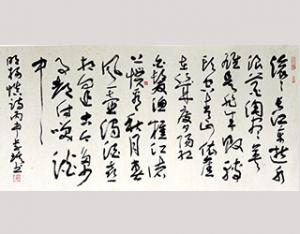 滚滚长江东逝水
浪花淘尽英
雄是非成败转
头空青山依旧
在几度夕阳红
白发渔樵江渚
上惯看秋月春
风一壶浊酒喜
相逢古今多少
事都付笑谈
中
明杨慎诗丙申